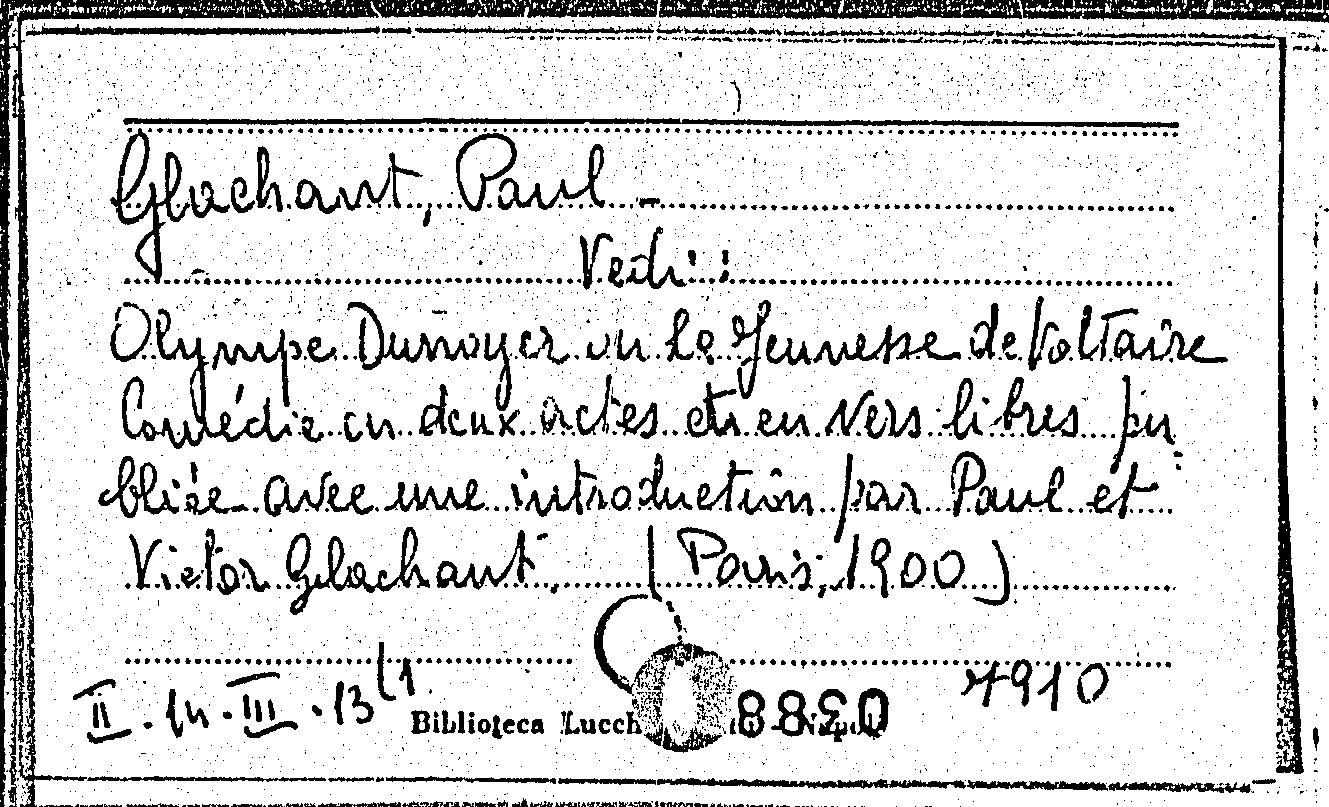 Glachant, Paul -
Vedi:
Olympe Dunoyer ou La Jeunesse de Voltaire
Comédie en deux actes et en vers libres pu
bliée avec une introduction par Paul et
Victor Glachant, (Paris, 1900)
7910
II. 14. III. 13 (1
Biblioteca Lucch